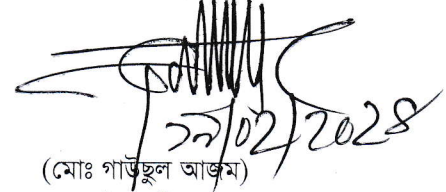 ১৯/০২/২০২৪
(মোঃ গাউছুল আজম)